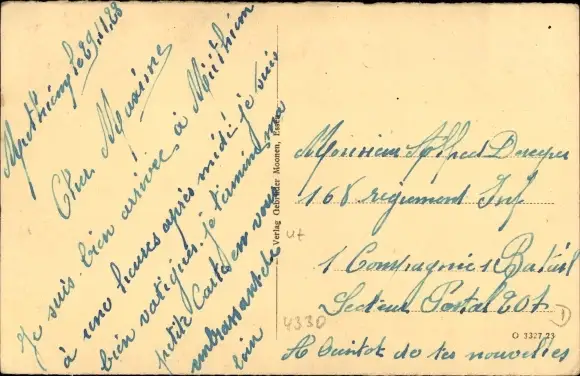 Mutheim le 29.11.23
Cher Maxime
Je suis bien arrivée à Mütheim
à une heures après midi je suis
bien vatiguér. je
petite Carte en vous
embrassant de
bien
Verlag Gebrüder Moonen, Essen.
Monsieur Alfred
168 regiement Inf
1 Compagnie 1 Batail
Secteur Postal 207
A Bientot de tes nouvelles
O 3327 23
4330